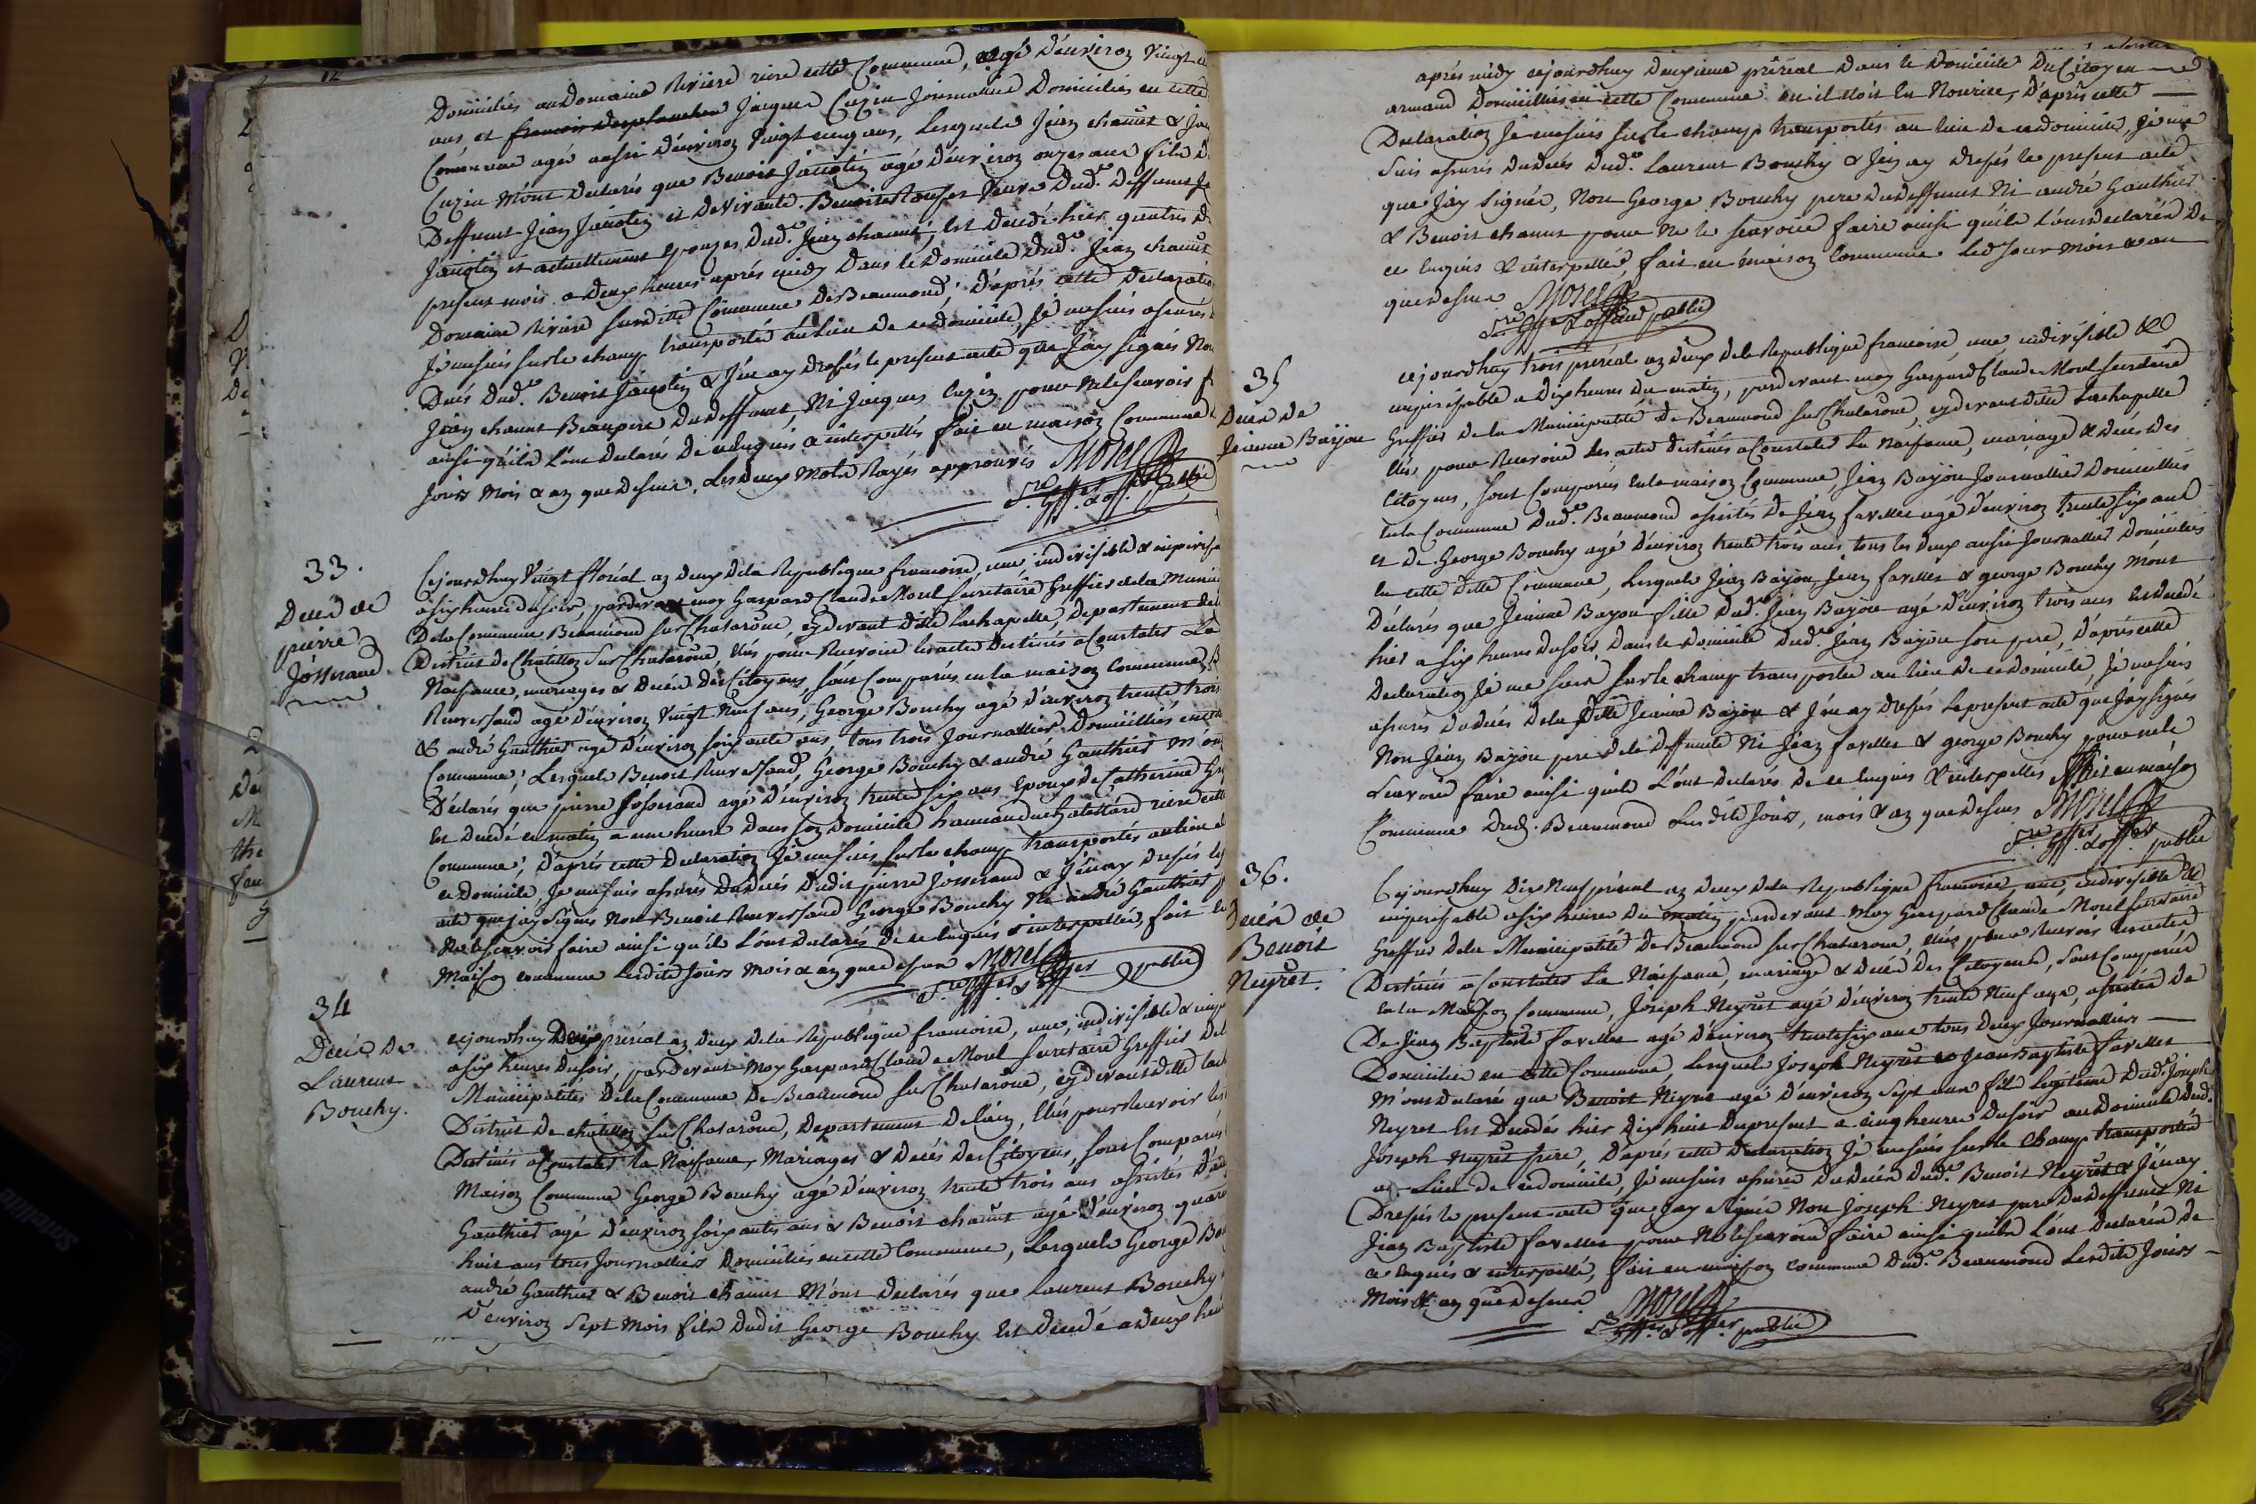 Domiciliés au Domaine Riviere riere cette Commune, agé D'environ Vingt
ans, et francois desplanches Jacques Cuzin Journalier Domicilies en cette
Commune agé aussi D'environ Vingt cinq ans, Lesquels Jean chanut & Ja
Cuzin M'ont Declarés que Benoit Janotin agé D'environ onze ans fils D
Deffunt Jean Janotin et De Vivante Benoite Ve Dud. Deffunt
Janotin et actuellement Epouzes Dud. Jean chanut, Est Decedé hier quatre D
present mois a Deux heures après midy Dans le Domicile Dud. Jean chanut
Domaine Riviere susditte Commune De Beaumond; D'après cette Declaration
Je me suis surle champ transporté au Lieu De ce domicile, Je me suis assurés
Decés Dud. Benoit Janotin & J'en ay Dresés le present acte que J'ay signés Non
Jean chanut Beaupere Du deffunt, Ni Jacques Cuzin pour Ne le scavoir
ainsi qu'ils L'ont Declarés De ce Enquis & interpellés fait en maison Commune
Jours Mois & an que Dessus. Les Deux Mots Rayés approuvés Morel
Sre Gffer & off. public
33.
Decés de
pierre
Josserand
Cejourdhuy Vingt floréal an deux Dela Republique francoise, une, indivisible & imperis
a six heures du soir, pardevant moy Gaspard Claude Morel Secretaire Greffier de la Munici
Dela Commune Beaumond sur Chalarone, cy devant Ditte Lachapelle, Departement de
District de Chatillon sur Chalarone Elus pour Recevoir les actes Destinés a Constater La
Naissance, mariages & Decés des Citoyens, sont Comparus en la maison commune B
Reverssand agé D'environ Vingt Neuf ans, George Bouchy agé D'environ trente trois
& andré Gauthier agé D'environ soixante ans, tous trois Journalliers Domicilliés en cette
Commune; Lesquels Benoit Reverssand, George Bouchy & andré Gauthier m'ont
Déclarés que pierre Josserand agé D'environ trente six ans Epoux De Catherine
Est Decedé ce matin a une heure Dans son Domicile hameau riere cette
Commune; D'après cette Declaration Je me suis sur le champ transportés au lieu de
ce Domicile, Je me suis assurés Du Decés Dudit pierre Josserand & J'en ay Dresés le
acte que j'ay signés Non Benoit Reverssand George Bouchy Ni andré Gauthier
Ne le scavoir faire ainsi qu'ils L'ont Declarés De ce Enquis & interpellés, fait En
Maison commune Lesdits Jours Mois & an que dessus Morel
Sre Gffer & offer public
34
Decés De
Laurent
Bouchy.
cejourdhuy Deux prerial an deux De la Republique francoise, une, indivisible & imp
a six heures Du soir, pardevant Moy Gaspard Claude Morel Secretaire Greffier De l
Municipalités Dela Commune De Beaumond sur Chalarone, cy devant ditte Lach
District De chatillon sur Chalarone, Departement De l'ain, Elus pour Recevoir les
Destinés a Constater la Naissance, Mariages & Decés Des Citoyens, sont Comparus
Maison Commune George Bouchy agé D'environ trente trois ans assistés D'an
Gauthier agé D'environ soixante ans & Benoit chanut agé D'environ quara
huit ans tous Journalliers Domiciliés en cette Commune, Lesquels George Bou
andré Gauthier & Benoit chanut M'ont Declarés que Laurent Bouchy
D'environ Sept Mois fils Dudit George Bouchy Est Decedé a deux heu
après midy cejourdhuy Deuxieme prérial Dans le Domicile Du Citoyen
armand Domicilliés en cette Commune ou il étoit En Nourice, D'après cette
Declaration Je me suis surle champ transportés au lieu De ce domicile, Je me
suis assurés Du Decés Dud. Laurent Bouchy & J'en ay Dresés le present acte
que J'ay signés, Non George Bouchy pere du deffunt Ni andré Gauthier
& Benoit chanut pour Ne le scavoir faire ainsi qu'ils L'ont declarés De
ce Enquis & interpellés, fait en maison Commune Led Jour Mois & an
que dessus Morel
Sre Gff & offer public
35
Decés de
Jeanne Bajou
cejourdhuy trois prerial an deux dela Republique francoise, une, indivisible &
imperissable a Dix heures du matin, pardevant moy Gaspard Claude Morel Secretaire
Greffier De la Municipalité De Beaumond sur Chalarone, cy devant ditte Lachapelle
Elus pour Recevoir les actes Destinés a Constater La Naissance, mariage & Decés Des
Citoyens, sont Comparus en la maison Commune Jean Bajou Journallier Domicilliés
en la Commune Dud. Beaumond assistés De Jean favelles agé D'environ trente six ans
et De George Bouchy agé D'environ trente trois ans tous les deux aussi Journallier Domiciliés
En cette ditte Commune, Lesquels Jean Bajou Jean favelles & george Bouchy M'ont
Déclarés que Jeanne Bajou fille Dud. Jean Bajou agé D'environ trois ans Est Decedé
hier a six heures du soir Dans le Domicile Dud. Jean Bajou son pere, D'après cette
Declaration Je me suis surle champ transportés au lieu De ce domicile, Je me suis
assurés Du Decés De la Ditte Jeanne Bajou & J'en ay Dresés Le present acte que J'ay signés
Non Jean Bajou pere De la Deffunte Ni Jean favelles & george Bouchy pour ne le
scavoir faire ainsi qu'ils L'ont declarés De ce Enquis & interpellés fait en maison
Commune Dud. Beaumond Lesdits Jours, mois & an que Dessus Morel
Sre Gff. & off. public
36.
Decés de
Benoit
Neyret.
Cejourdhuy Dix Neuf prérial an deux Dela Republique francoise, une, indivisible &
imperissable a six heures Du matin pardevant Moy Gaspard Claude Morel Secretaire
Greffier Dela Municipalité De Beaumond sur Chalarone, Elus pour Recevoir les actes
Destinés a Constater La Naissance, mariage & Decés Des Citoyens, sont Comparus
en la Maison Commune, Joseph Neyret agé D'environ trente Neuf ans, assistés De
De Jean Baptiste favelles agé D'environ trente six ans tous Deux Journalliers
Domicilies en cette Commune, Lesquels Joseph Neyret & Jean Baptiste favelles
M'ont Declarés que Benoit Neyret agé D'environ Sept ans fils Legitime Dud. Joseph
Neyret Est Decedés hier Dix huit Du present a cinq heures Du soir au Domicile Dud.
Joseph Neyret pere, D'après cette Declaration Je me suis surle champ transportés
au Lieu de ce domicile, Je me suis assurés Du Decés Dud. Benoit Neyret & J'en ay
Dresés le present acte que J'ay signés Non Joseph Neyret pere Du deffunt Ni
Jean Baptiste favelles pour Ne le scavoir faire ainsi qu'ils L'ont Declarés De
ce Enquis & interpellés, fait en maison commune Dud. Beaumond Lesdits Jours
Mois & an que Dessus. Morel
Sre Gffer & offer public